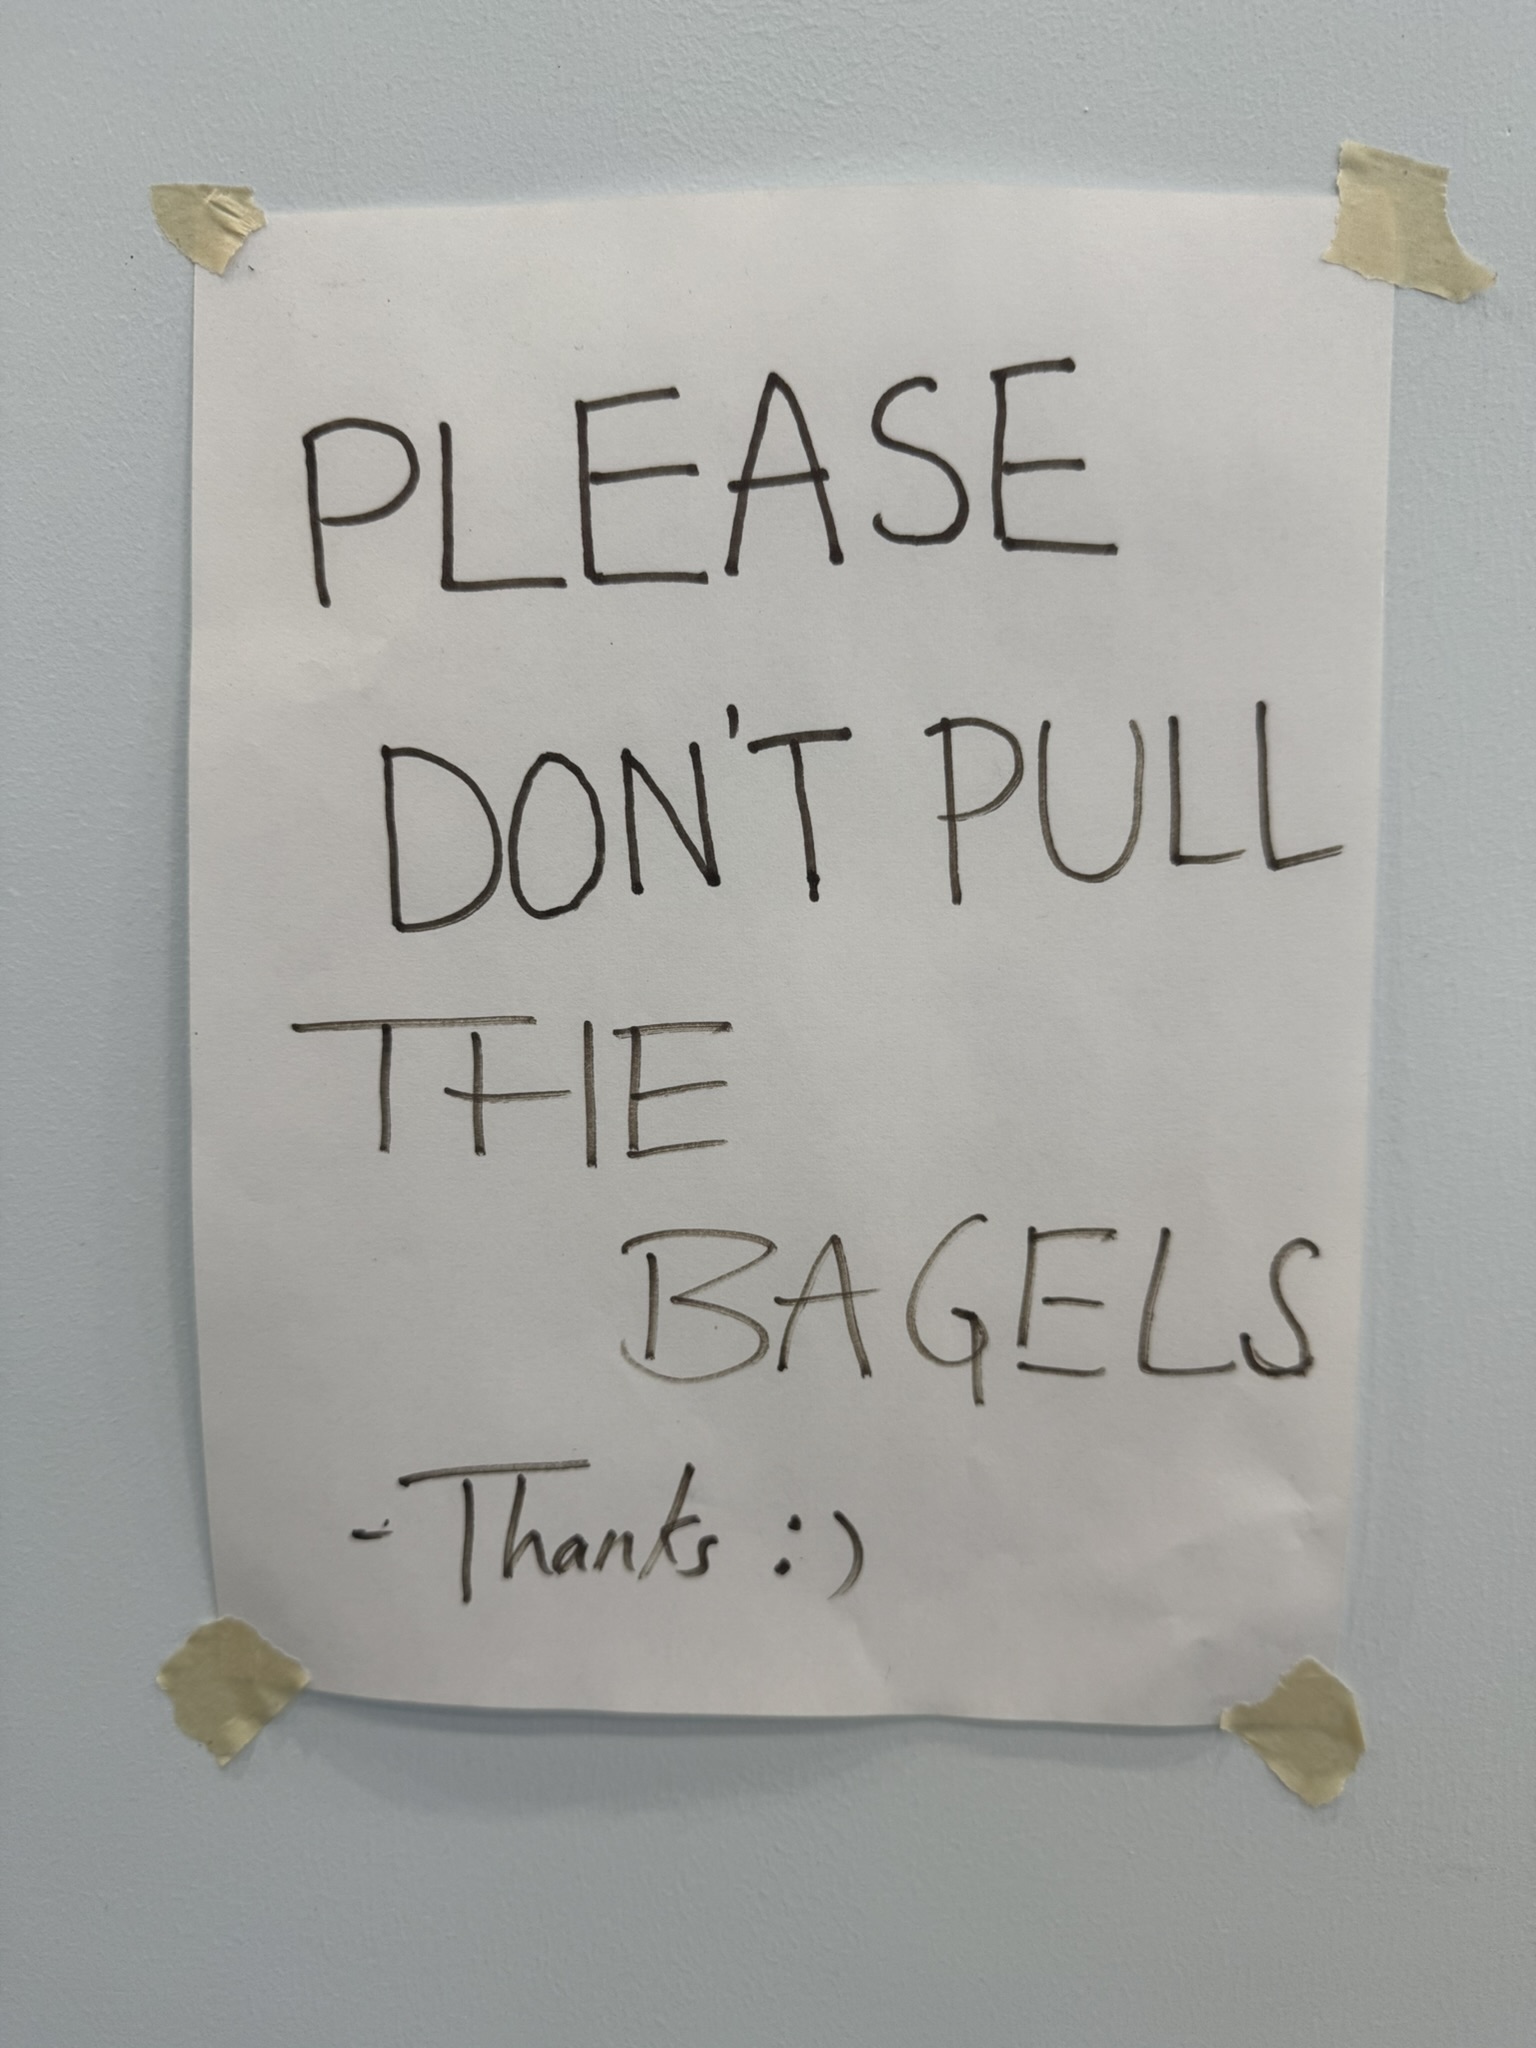 PLEASE
DON'T PULL
THE
BAGELS
- Thanks :)